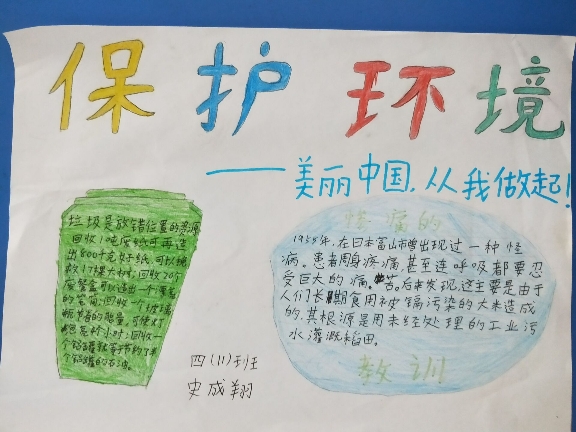 保护环境
——美丽中国，从我做起！
垃圾是放错位置的资源
回收1吨废纸可再造
出800千克好纸,可以挽
救17棵大树;回收20个
相当于节约了半
个铝罐的石油。
惨痛的
1955年,在日本富山市曾出现过一种怪
病,患者周身疼痛,甚至连呼吸都要忍
受巨大的痛苦。后来发现,这主要是由于
人们长期食用被镉污染的大米造成
的,其根源是用未经处理的工业污
水灌溉稻田。
教训
四(11)班
史成翔